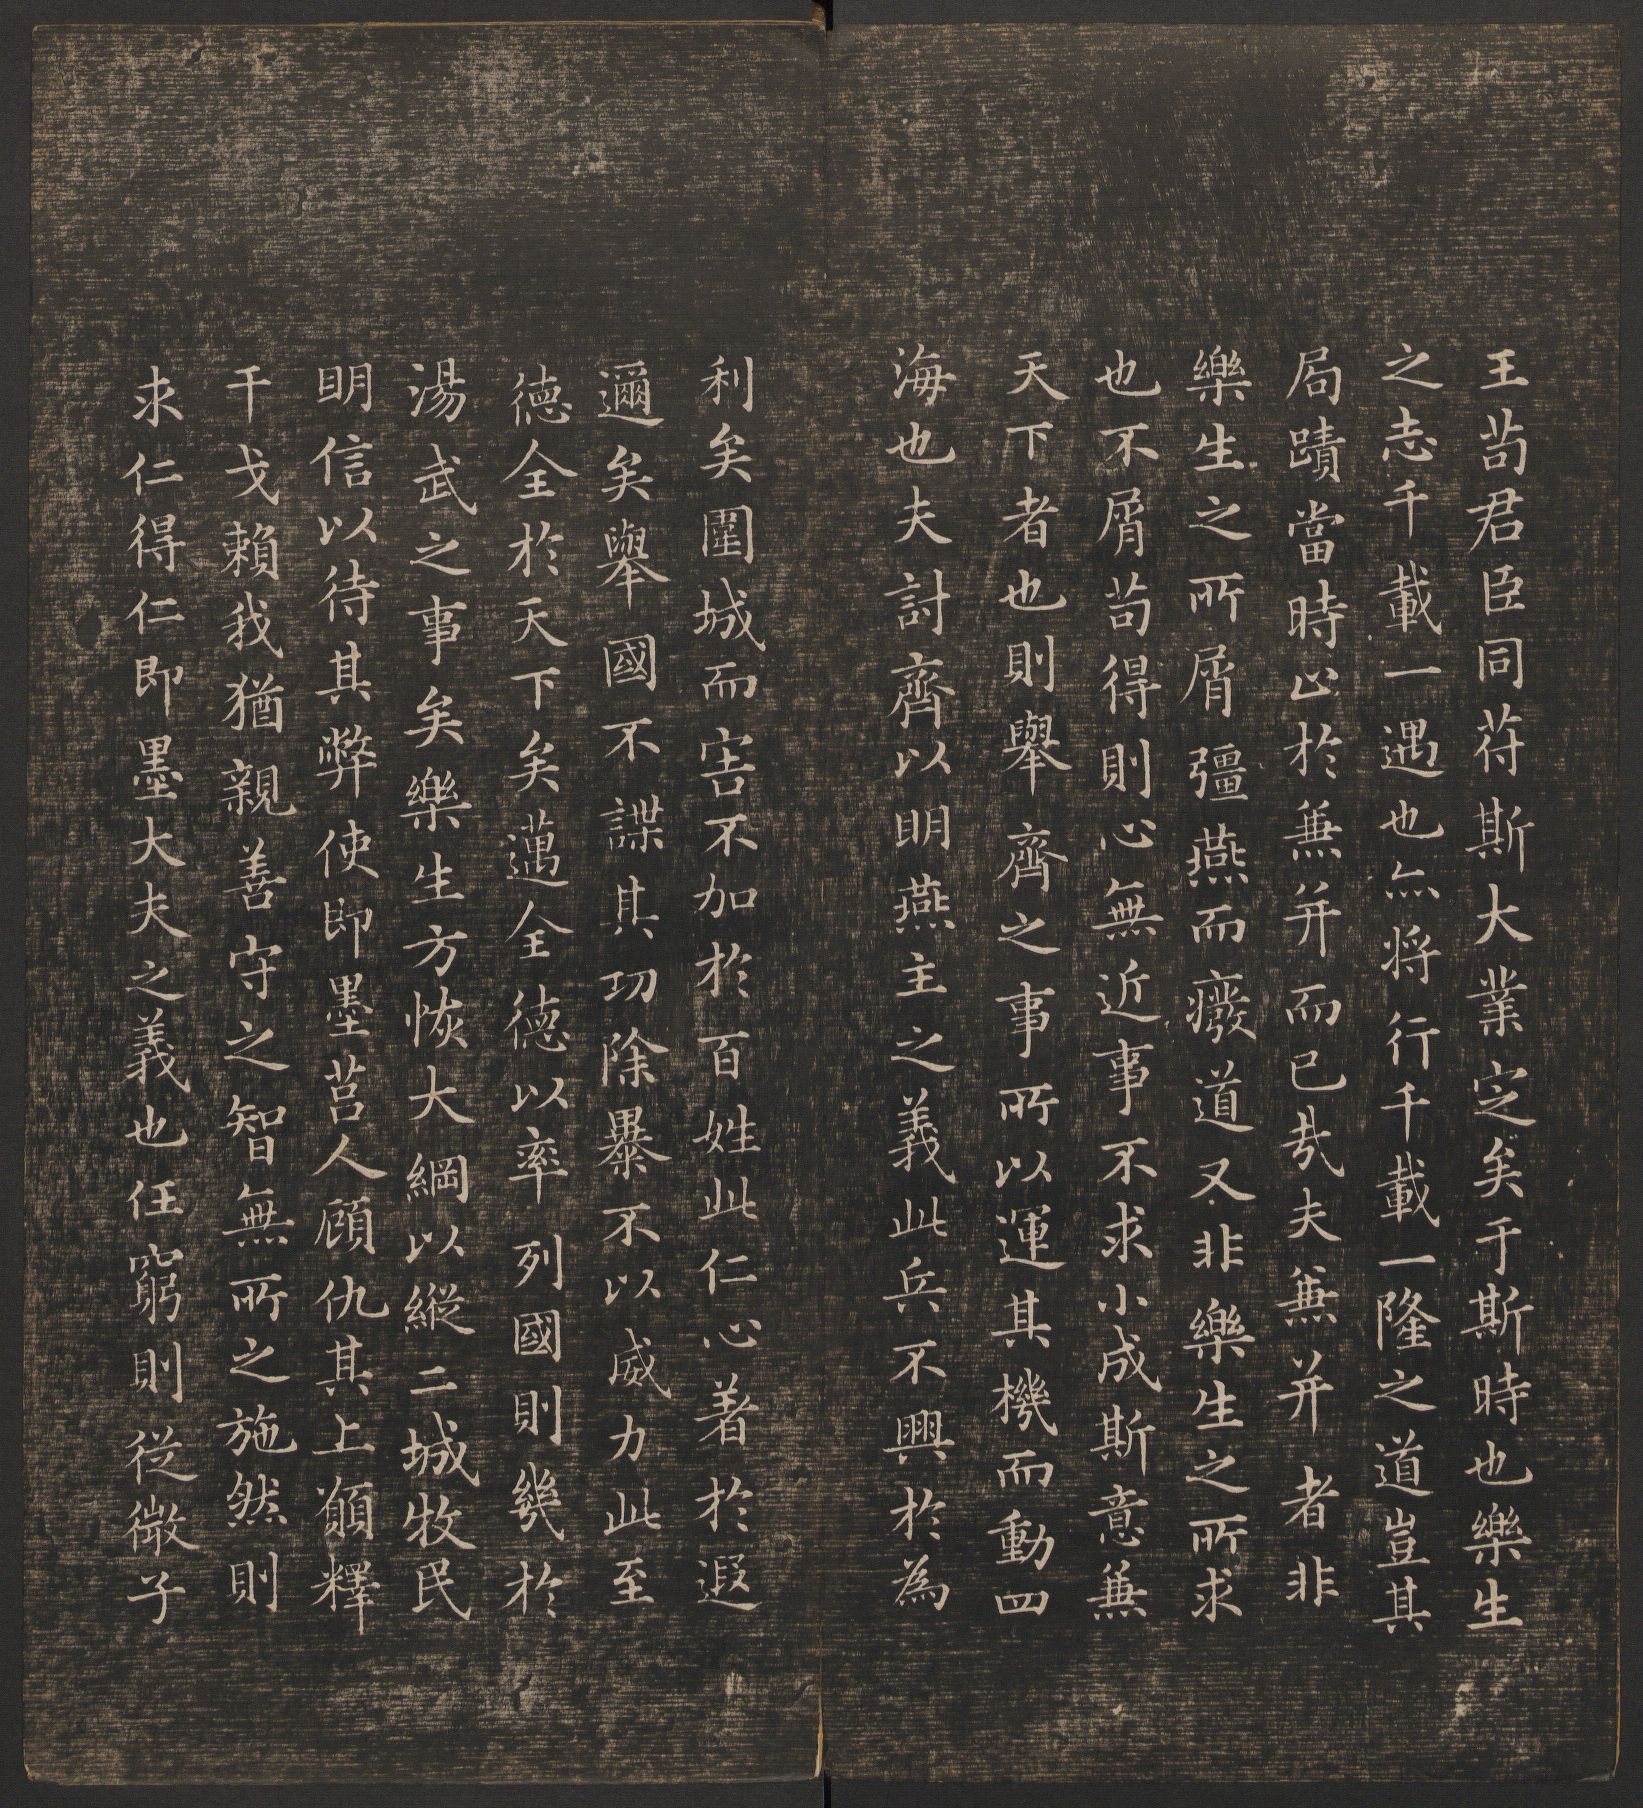 王苟君臣同苻斯大業定矣于斯時也樂生
之志千載一遇也亦將行千載一隆之道豈其
局蹟當時止於兼并而已哉夫兼并者非
樂生之所屑彊燕而癈道又非樂生之所求
也不屑苟得則心無近事不求小成斯意兼
天下者也則舉齊之事所以運其機而動四
海也夫討齊以明燕主之義此兵不興於為
利矣圍城而害不加於百姓此仁心著於遐
邇矣舉國不謀其功除暴不以威力此至
德全於天下矣邁全德以率列國則幾於
湯武之事矣樂生方恢大綱以縱二城牧民
明信以待其弊使即墨莒人顧仇其上願釋
干戈賴我猶親善守之智無所之施然則
求仁得仁即墨大夫之義也任窮則從微子